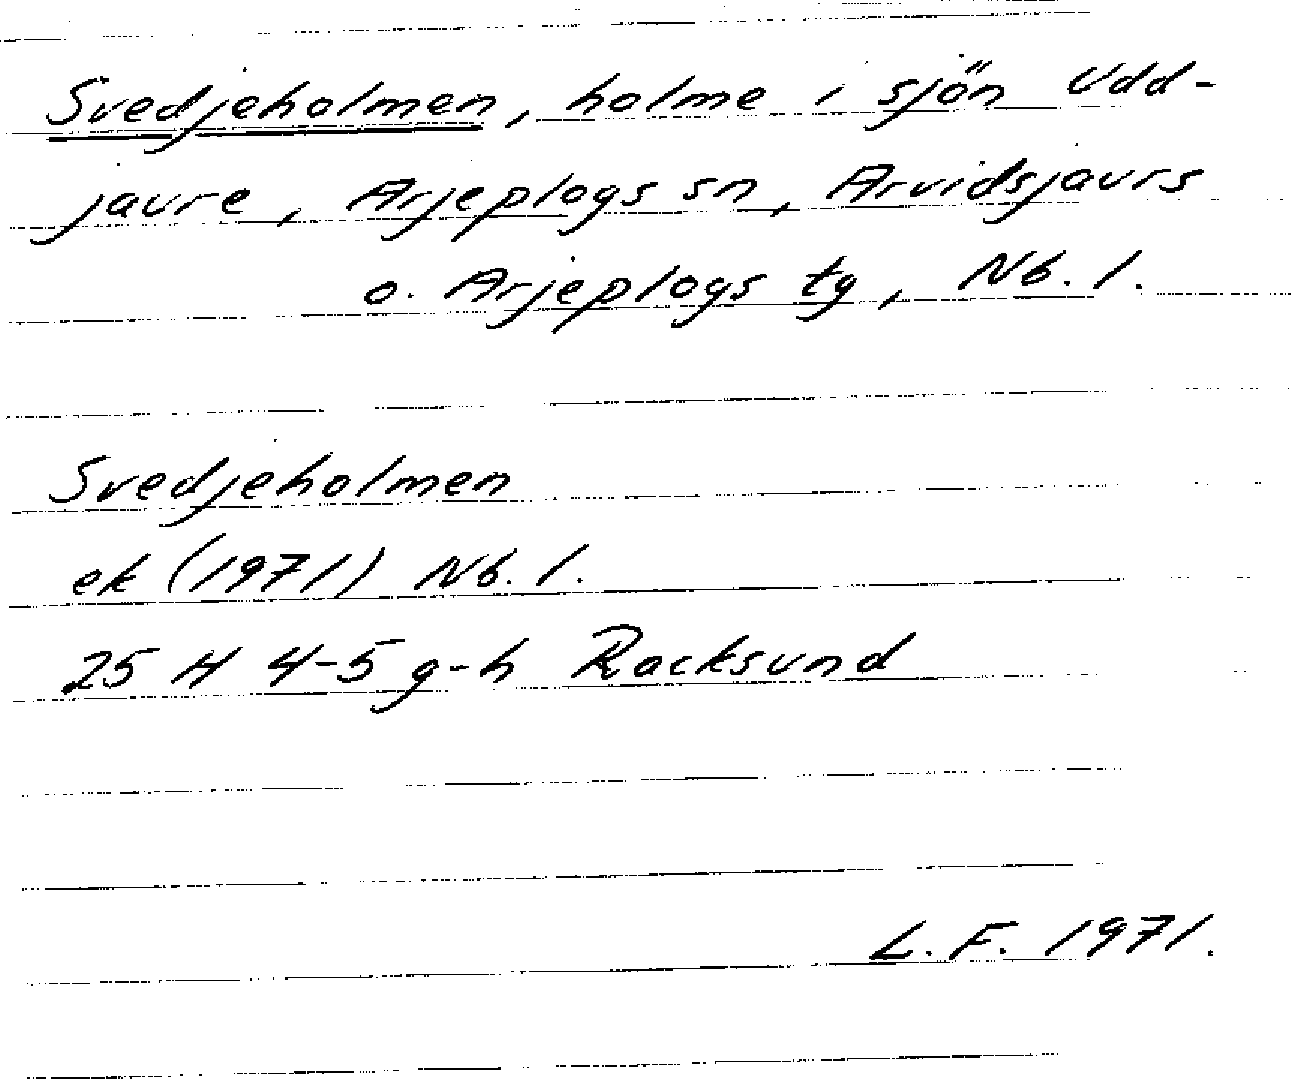 Svedjeholmen, holme i sjön Udd-
jaure, Arjeplogs sn, Arvidsjaurs
o. Arjeplogs tg, Nb. l.
Svedjeholmen
ek (1971) Nb. l.
25 H 4-5 g-h Racksund
L.F. 1971.